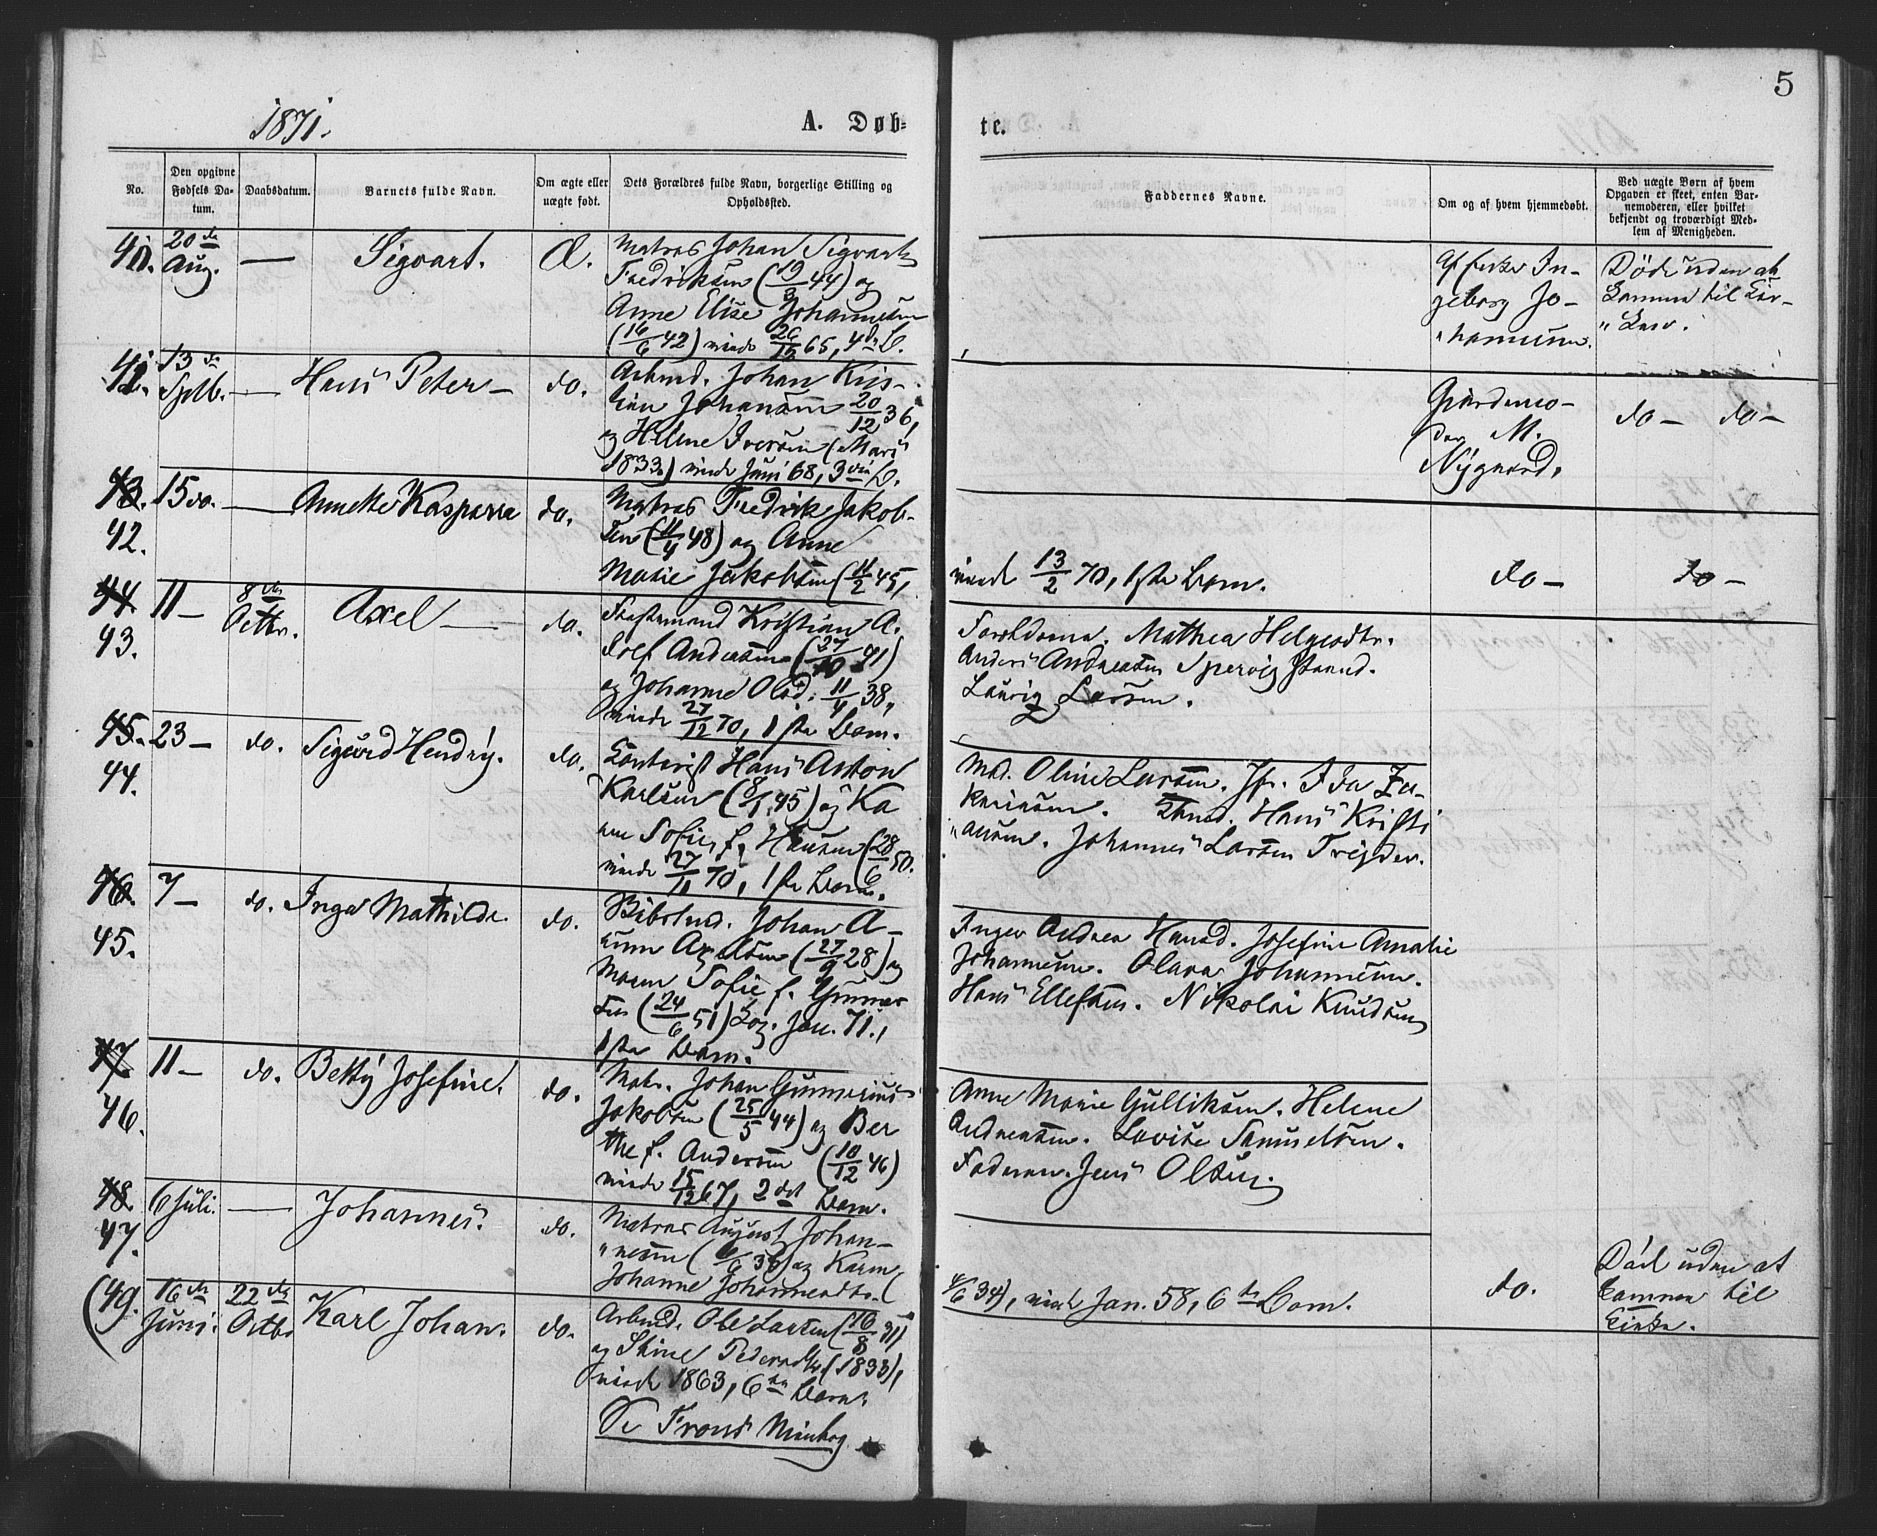 5
1871.
A. Døb=
te.
No.
Den opgivne Fødsels Da-tum.
Daabsdatum.
Barnets fulde Navn.
Om ægte eller uægte født.
Dets Forældres fulde Navn, borgerlige Stilling og Opholdssted.
Faddernes Navne.
Om og af hvem hjemmedøbt.
Ved uægte Børn af hvem Opgaven er skeet, enten Bar-nemoderen, eller hvilket bekjendt og troværdigt Med-lem af Menigheden.
20de
Aug.
—
Sigvart.
Æ.
Matros Johan Sigvart
Fredriksen (19/3 44) og
Anne Elise Johannesen
(16/6 42) viede 26/12 65, 4de B.
Af Enke In-
geborg Jo-
"hannesen.
Døde uden at
komme til Kir-
"ken.
13de
Sptb.
—
Hans Peter —
do.
Arbmd. Johan Kris-
tian Johansen 20/12 36,
og Helene Iversen (Mars
1833) viede Juni 68, 3die B.
Gjordemo-
der M.
Nygaard.
do — do —
43.
42.
15 do.
—
Annette Kasparra
do.
Matros Fredrik Jakob-
sen (11/4 48) og Anne
Marie Jakobsen (11/2 45,
viede 13/2 70, 1ste Barn.
do —
do —
44
43.
11 —
8de
Octbr.
Axel —
do.
Kristian A-
dolf Andersen (27/10 41)
og Johanne Olsd. 11/4 38,
viede 27/12 70, 1ste Barn.
Mathea Helgesdtr.
Anders Andreassen
Lauritz Larsen.
45.
44.
23 —
do.
Sigurd Hendry.
do.
Kontorist Hans Anton
Karlsen (8/1 45) og Ka
ren Sofie f. Hansen (28/6 50.
viede 27/11 70, 1ste Barn.
Mad. Oline Larsen. Jfr. Ida Za-
kariasen. Hans Kristi
"ansen. Johannes Larsen
46.
45.
7 —
do.
Inga Mathilde.
do.
Johan A-
Axelsen (27/9 28) og
Maren Sofie f. Gunner
sen (24/6 51) Jan. 71.,
1ste Barn.
Inger Andrea Hansd. Josefine Amalie
Johannesen. Olava Johannesen.
Hans Ellefsen. Nikolai Knudsen
47.
46.
11 —
do.
Betty Josefine.
do.
Matr. Johan Gunnerius
Jakobsen (25/5 44) og Ber
the f. Andersen (10/12 46)
viede 15/12 67, 2det Barn.
Anne Marie Gulliksen. Helene
Andreassen. Lovise Samuelsen.
Faderen. Jens Olsen.
48.
47.
6 Juli.
—
Johannes.
do.
Matros August Johan-
"nesen (6/6 36) og Karen
Johanne Johannesdtr. (
4/6 34), viede Jan. 58, 6te Barn.
do.
Død uden at
komme til
Kirke.
(49.
16de
Juni.
22de
Octbr
Karl Johan.
do.
Arbmd. Ole Larsen (10/8 31)
og Stine Pedersdtr (1833),
viede 1863, 6te Barn.
Se Froens Minibog